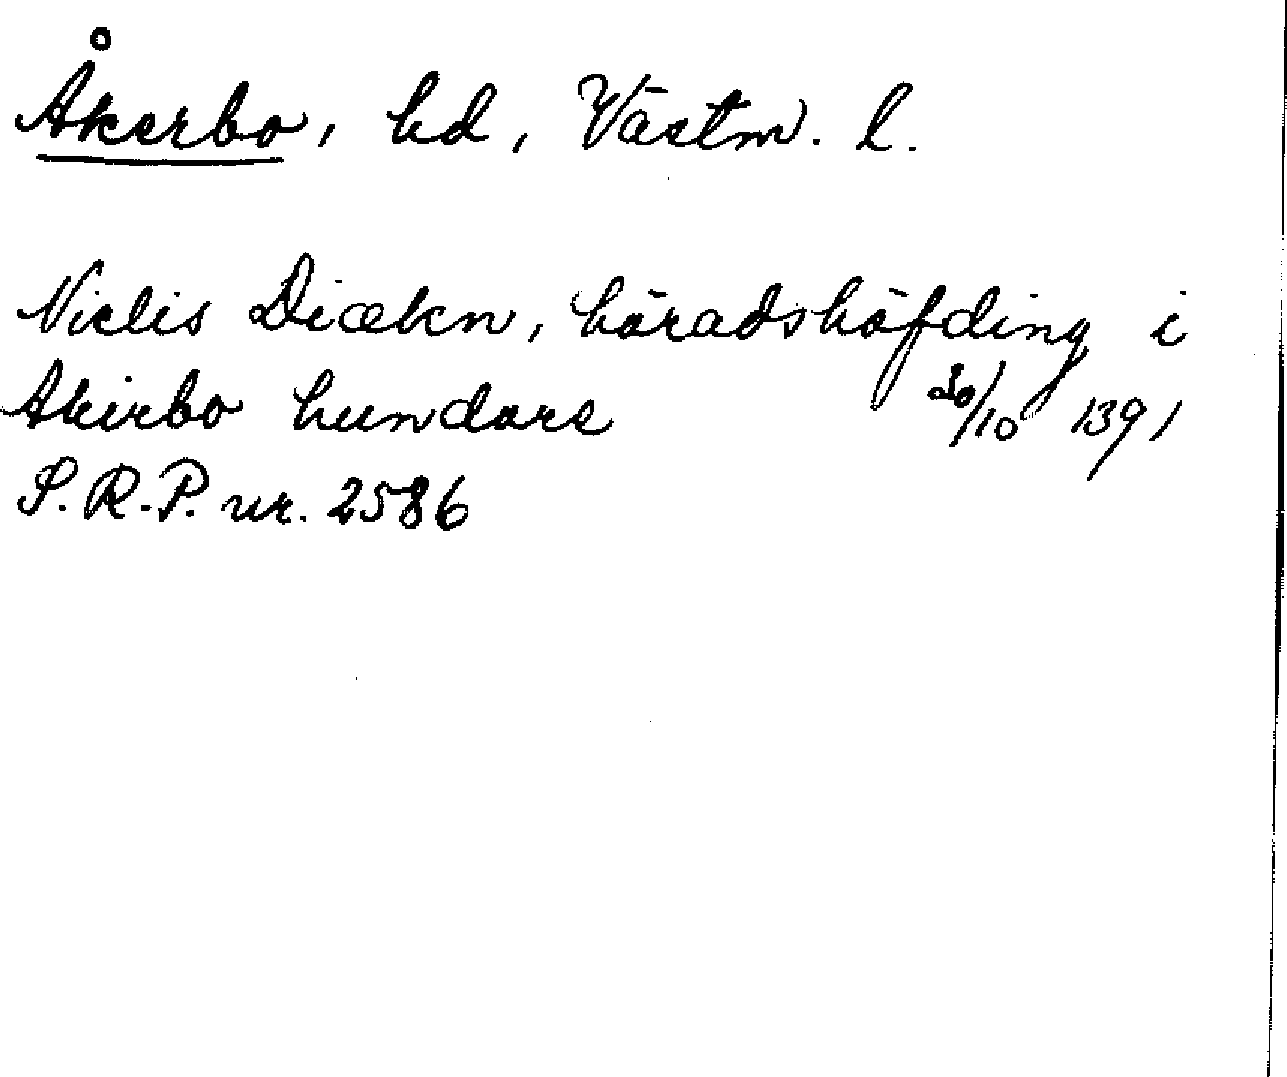 Åkerbo, hd, Västm. l.
Niclis Diækn, häradshöfding i
Akirbo hundare 30/10 1391
S.R.P. nr. 2586